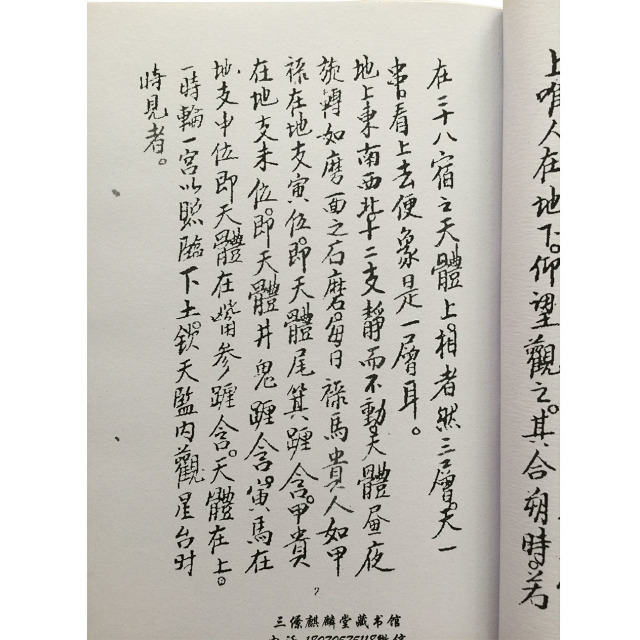 上唯人在地下。仰望觀之。其合朔時。若
在二十八宿之天體上。相者然三层。天一
串看上去便象是一層耳。
地上東南西北。十二支靜而不動。天體昼夜
旋轉如磨面之石磨。每日祿馬貴人如甲
祿在地支寅位。即天體尾箕躔舍。甲貴
在地支未位。即天體井鬼躔舍。寅馬在
地支申位即天體在觜參躔舍。天體在上。
一時輪一宮以照臨下土。鎖天監内觀星台时
時見者。
7
三僚麒麟堂藏书馆